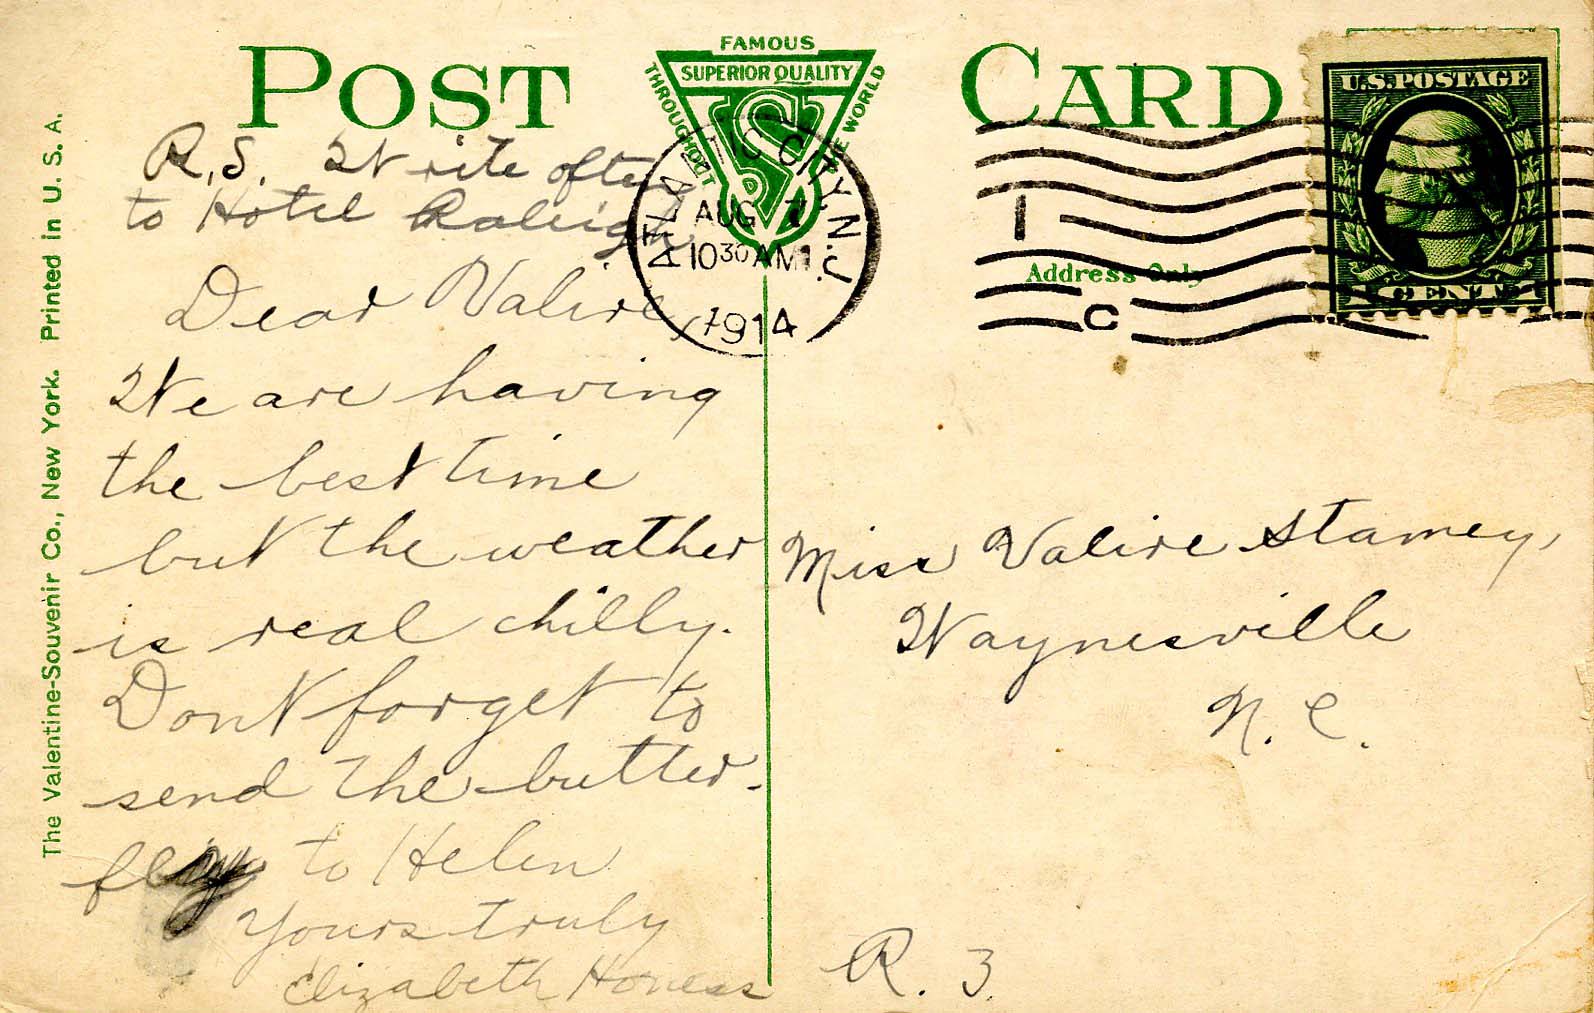 POST CARD
FAMOUS
SUPERIOR QUALITY
THROUGHOUT THE WORLD
VS
ATLANTIC CITY, N.J.
AUG 7
10 30 AM
1914
1
C
U.S. POSTAGE
Address Only
The Valentine-Souvenir Co., New York. Printed in U. S. A.
R.S. Write often
to Hotel Raleigh
Dear Valire,
We are having
the best time
but the weather
is real chilly.
Dont forget to
send the butter-
fly to Helen
Yours truly
Elizabeth Honess
Miss Valire Stamey,
Waynesville
N. C.
R. 3